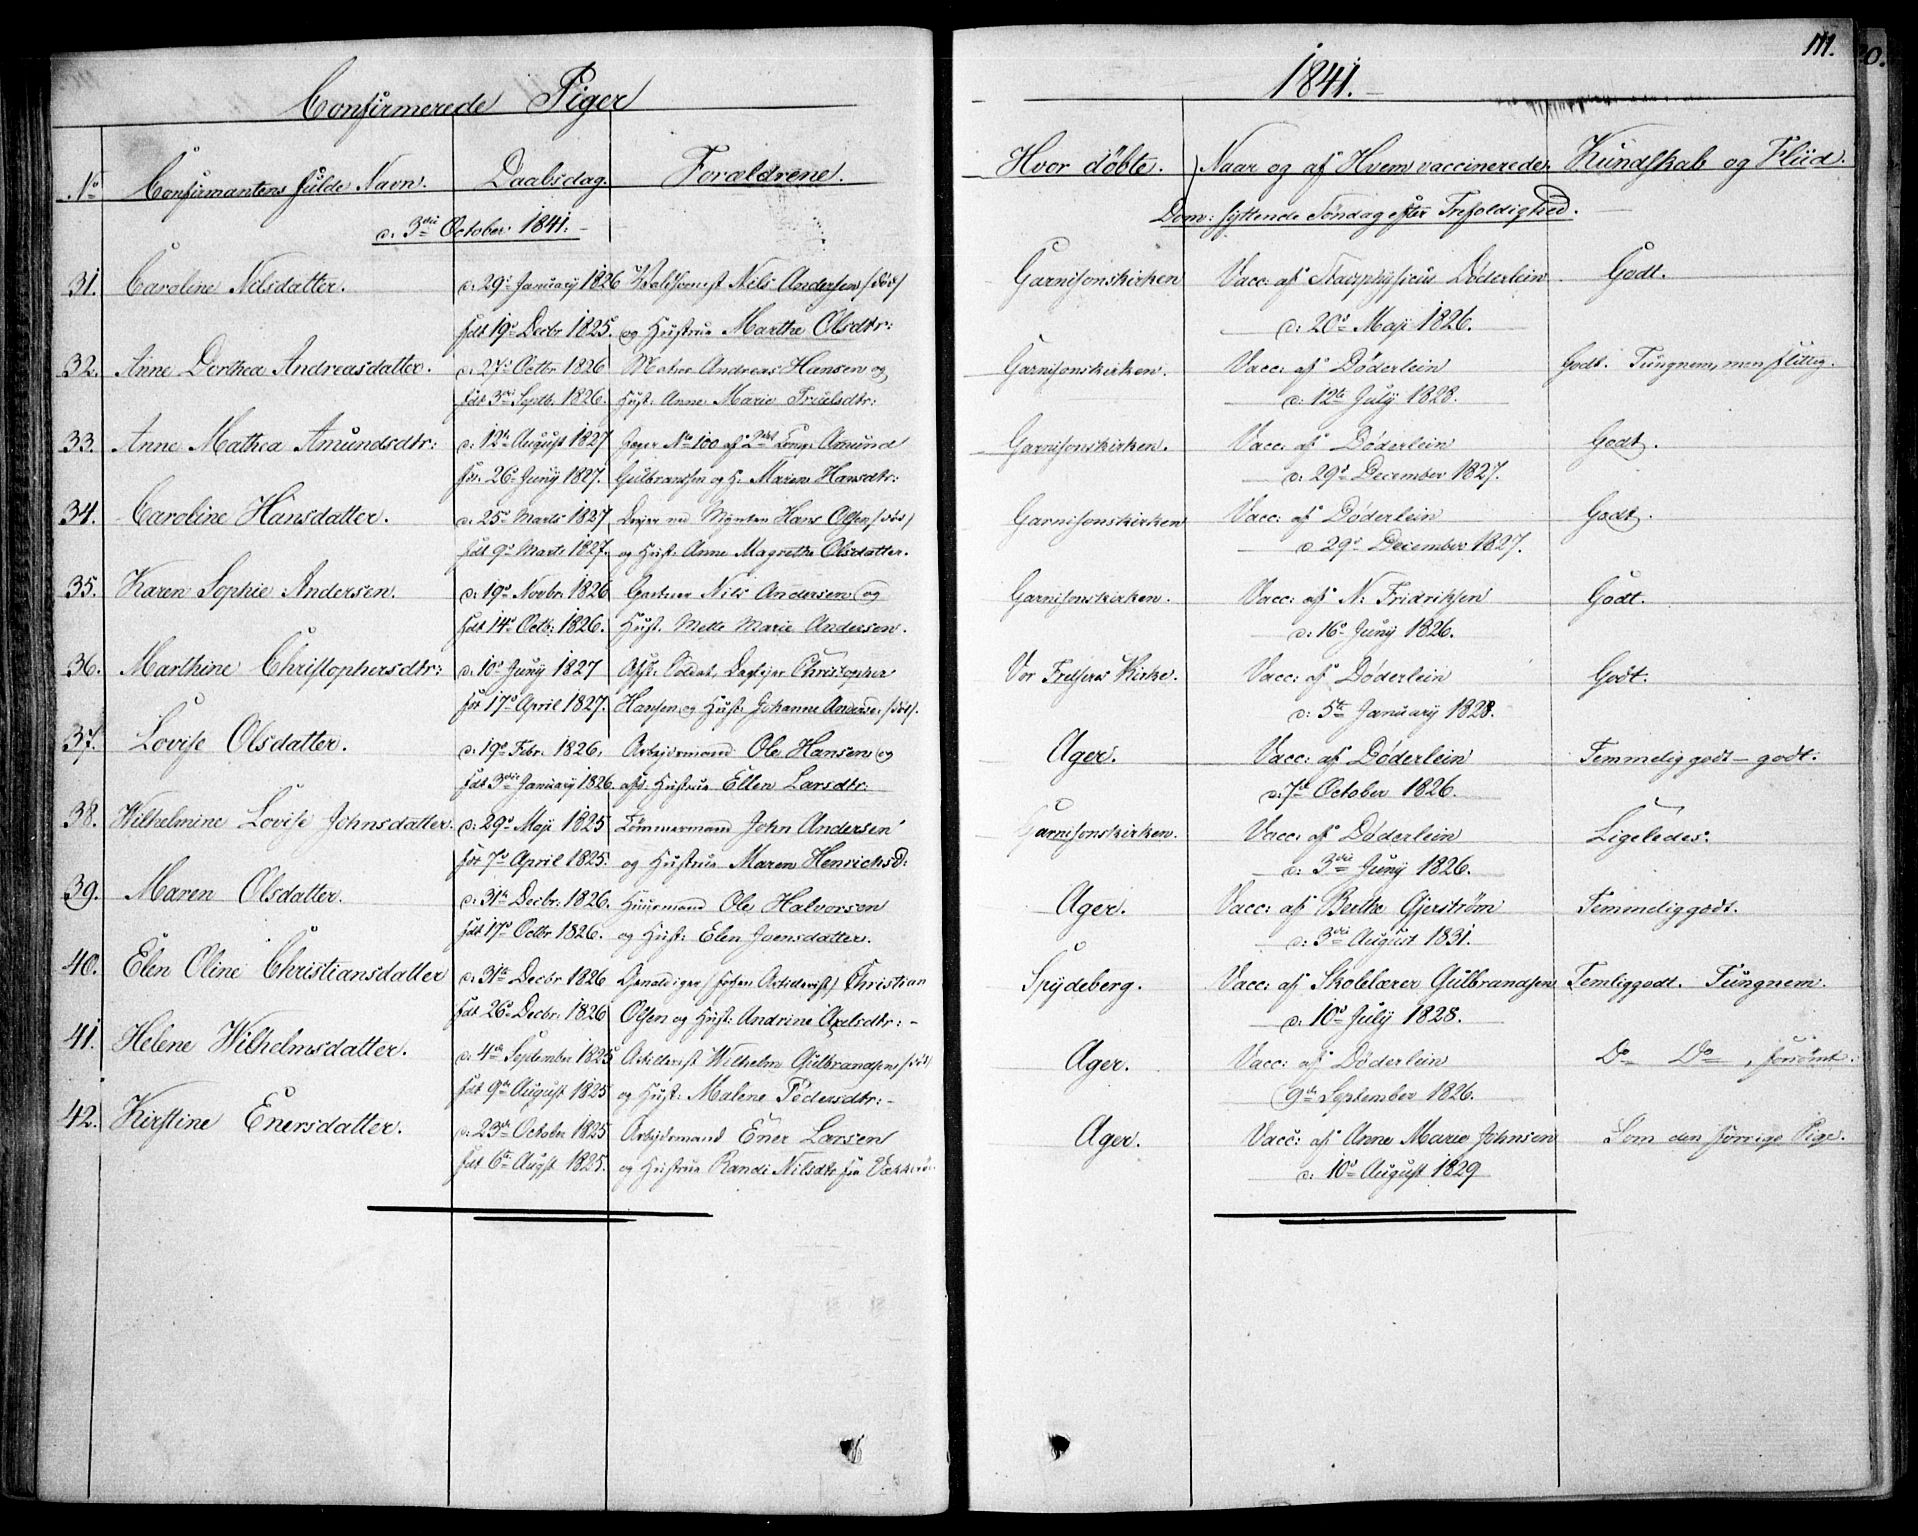 Confirmerede Piger
No Confirmantens fulde Navn. Daabsdag. Forældrene.
d. 3die October 1841.
31. Caroline Nilsdatter. d. 29de Januarÿ 1826 Nils Andersen /død/
fdt 19de Decbr 1825. og Hustrue Marthe Olsdtr:
32. Anne Dorthea Andreasdatter. d. 27de Octbr 1826 Andreas Hansen og
fdt 3die Septb. 1826. Hust: Anne Marie Truelsdtr:
33. Anne Mathea Amundsdtr: d. 12te August 1827 Jæger No 100 af 2det Comp: Amund
fdt. 26de Junÿ 1827. Gulbrandsen og H. Maren Hansdtr:
34. Caroline Hansdatter. d. 25de Marts 1827 Dreÿer ved Mÿnten Hans Olsen, /død/
fdt 9de Marts 1827. og Hust. Anne Magrethe Olsdatter.
35. Karen Sophie Andersen. d. 19de Novbr. 1826 Gartner Nils Andersen og
fdt 14de Octb: 1826. Hust. Mette Marie Andersen.
36. Marthine Christophersdtr: d. 10de Junÿ 1827 Afsk: Soldat, Dagleÿer Christopher
fdt 17de April 1827. Hansen og Hust: Johanne Anderse. /død/.
37. Lovise Olsdatter. d. 19de Febr. 1826. Arbejdsmand Ole Hansen og
fdt 3die Januarÿ 1826. afd. Hustrue Ellen Larsdtr:
38. Wilhelmine Lovise Johnsdatter. d. 29de Maji 1825 Tømmermand John Andersen
fdt 7de April 1825. og Hustrue Maren Henrichsd:
39. Maren Olsdatter. d. 31te Decbr. 1826. Huusmand Ole Halvorsen
fdt 17de Octbr 1826. og Hust: Elen Ivensdatter.
40. Elen Oline Christiansdatter d. 31te Decbr 1826 Christian
fdt 26de Decbr: 1826 Olsen og Hust: Andrine Axelsdtr: -
41. Helene Wilhelmsdatter. d. 4de September 1825 Artillerist Wilhelm Gulbrandsen, /død/
fdt 9de August 1825 og Hust: Malene Pedersdtr: -
42. Kirstine Enersdatter. d. 23de October 1825 Arbejdsmand Ener Larsen
fdt 6te Augst 1825. og Hustrue Randi Nilsdtr fra
111.
1841.
Hvor døbte. Naar og af Hvem vaccinerede. Kundskab og Fliid.
Dom: syttende Søndag efter Trefoldighed.
Garnisonskirken Vacc: af Stadsphysicus Døderlein Godt.
d: 20de Maji 1826.
Garnisonskirken. Vacc: af Døderlein Godt. Tungnem, men flittig.
d: 12te Julÿ 1828.
Garnisonskirken. Vacc: af Døderlein Godt.
d: 29de December 1827.
Garnisonskirken Vacc: af Døderlein Godt.
d 29de December 1827.
Garnisonskirken. Vacc: af N: Fridriksen Godt.
d: 16de Junÿ 1826.
Vor Frelsers Kirke. Vacc: af Døderlein Godt.
d: 5te Januarÿ 1828.
Ager. Vacc: af Døderlein Temmelig godt - godt.
d: 7de October 1826.
Garnisonskirken. Vacc: af Døderlein Ligeledes.
d: 3die Junÿ 1826.
Ager. Vacc: af Berthe Gjerstrøm Temmeliggodt.
d: 3die August 1831.
Spÿdeberg. Vacc: af Skolelærer Gulbrandsen Temliggodt. Tungnem.
d: 10de Julÿ 1828.
Ager. Vacc: af Døderlein Do Do, forsømt.
9de September 1826.
Ager. Vacc: af Anne Marie Johnsen Som den forrige Pige.
d: 10de August 1829